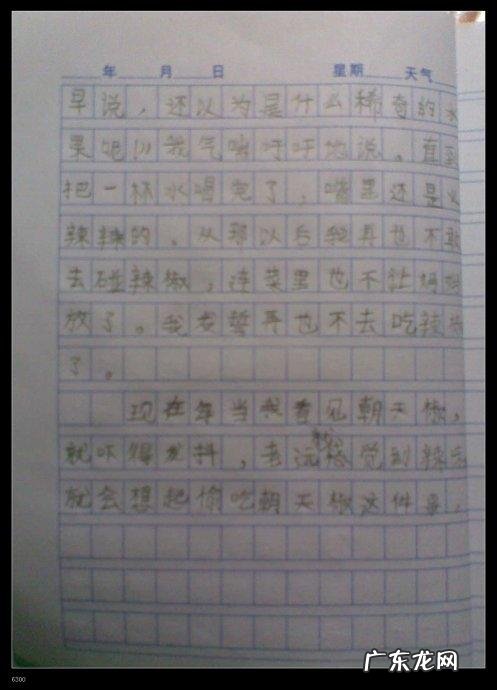 年 月 日 星期 天气
早说，还以为是什么稀奇的水
果呢！”我气喘吁吁地说。直到
把一杯水喝完了，嘴里还是火
辣辣的。从那以后我再也不敢
去碰辣椒，连菜里也不让妈妈
放了。我发誓再也不去吃辣椒
了。
现在每当我看见朝天椒，
就吓得发抖，老远就感觉到辣
就会想起偷吃朝天椒这件事，
广东龙网
6300